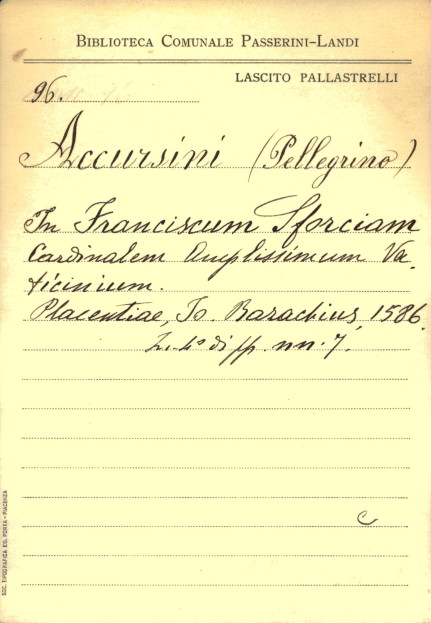 BIBLIOTECA COMUNALE PASSERINI-LANDI
LASCITO PALLASTRELLI
96.
Accursini (Pellegrino)
In Franciscum Sforciam
Cardinalem Amplissimum Va,
ticinium.
Placentiae, Io. Barachius, 1586.
di pp. nn. 7.
C
SOC. TIPOGRAFICA ED. PORTA - PIACENZA